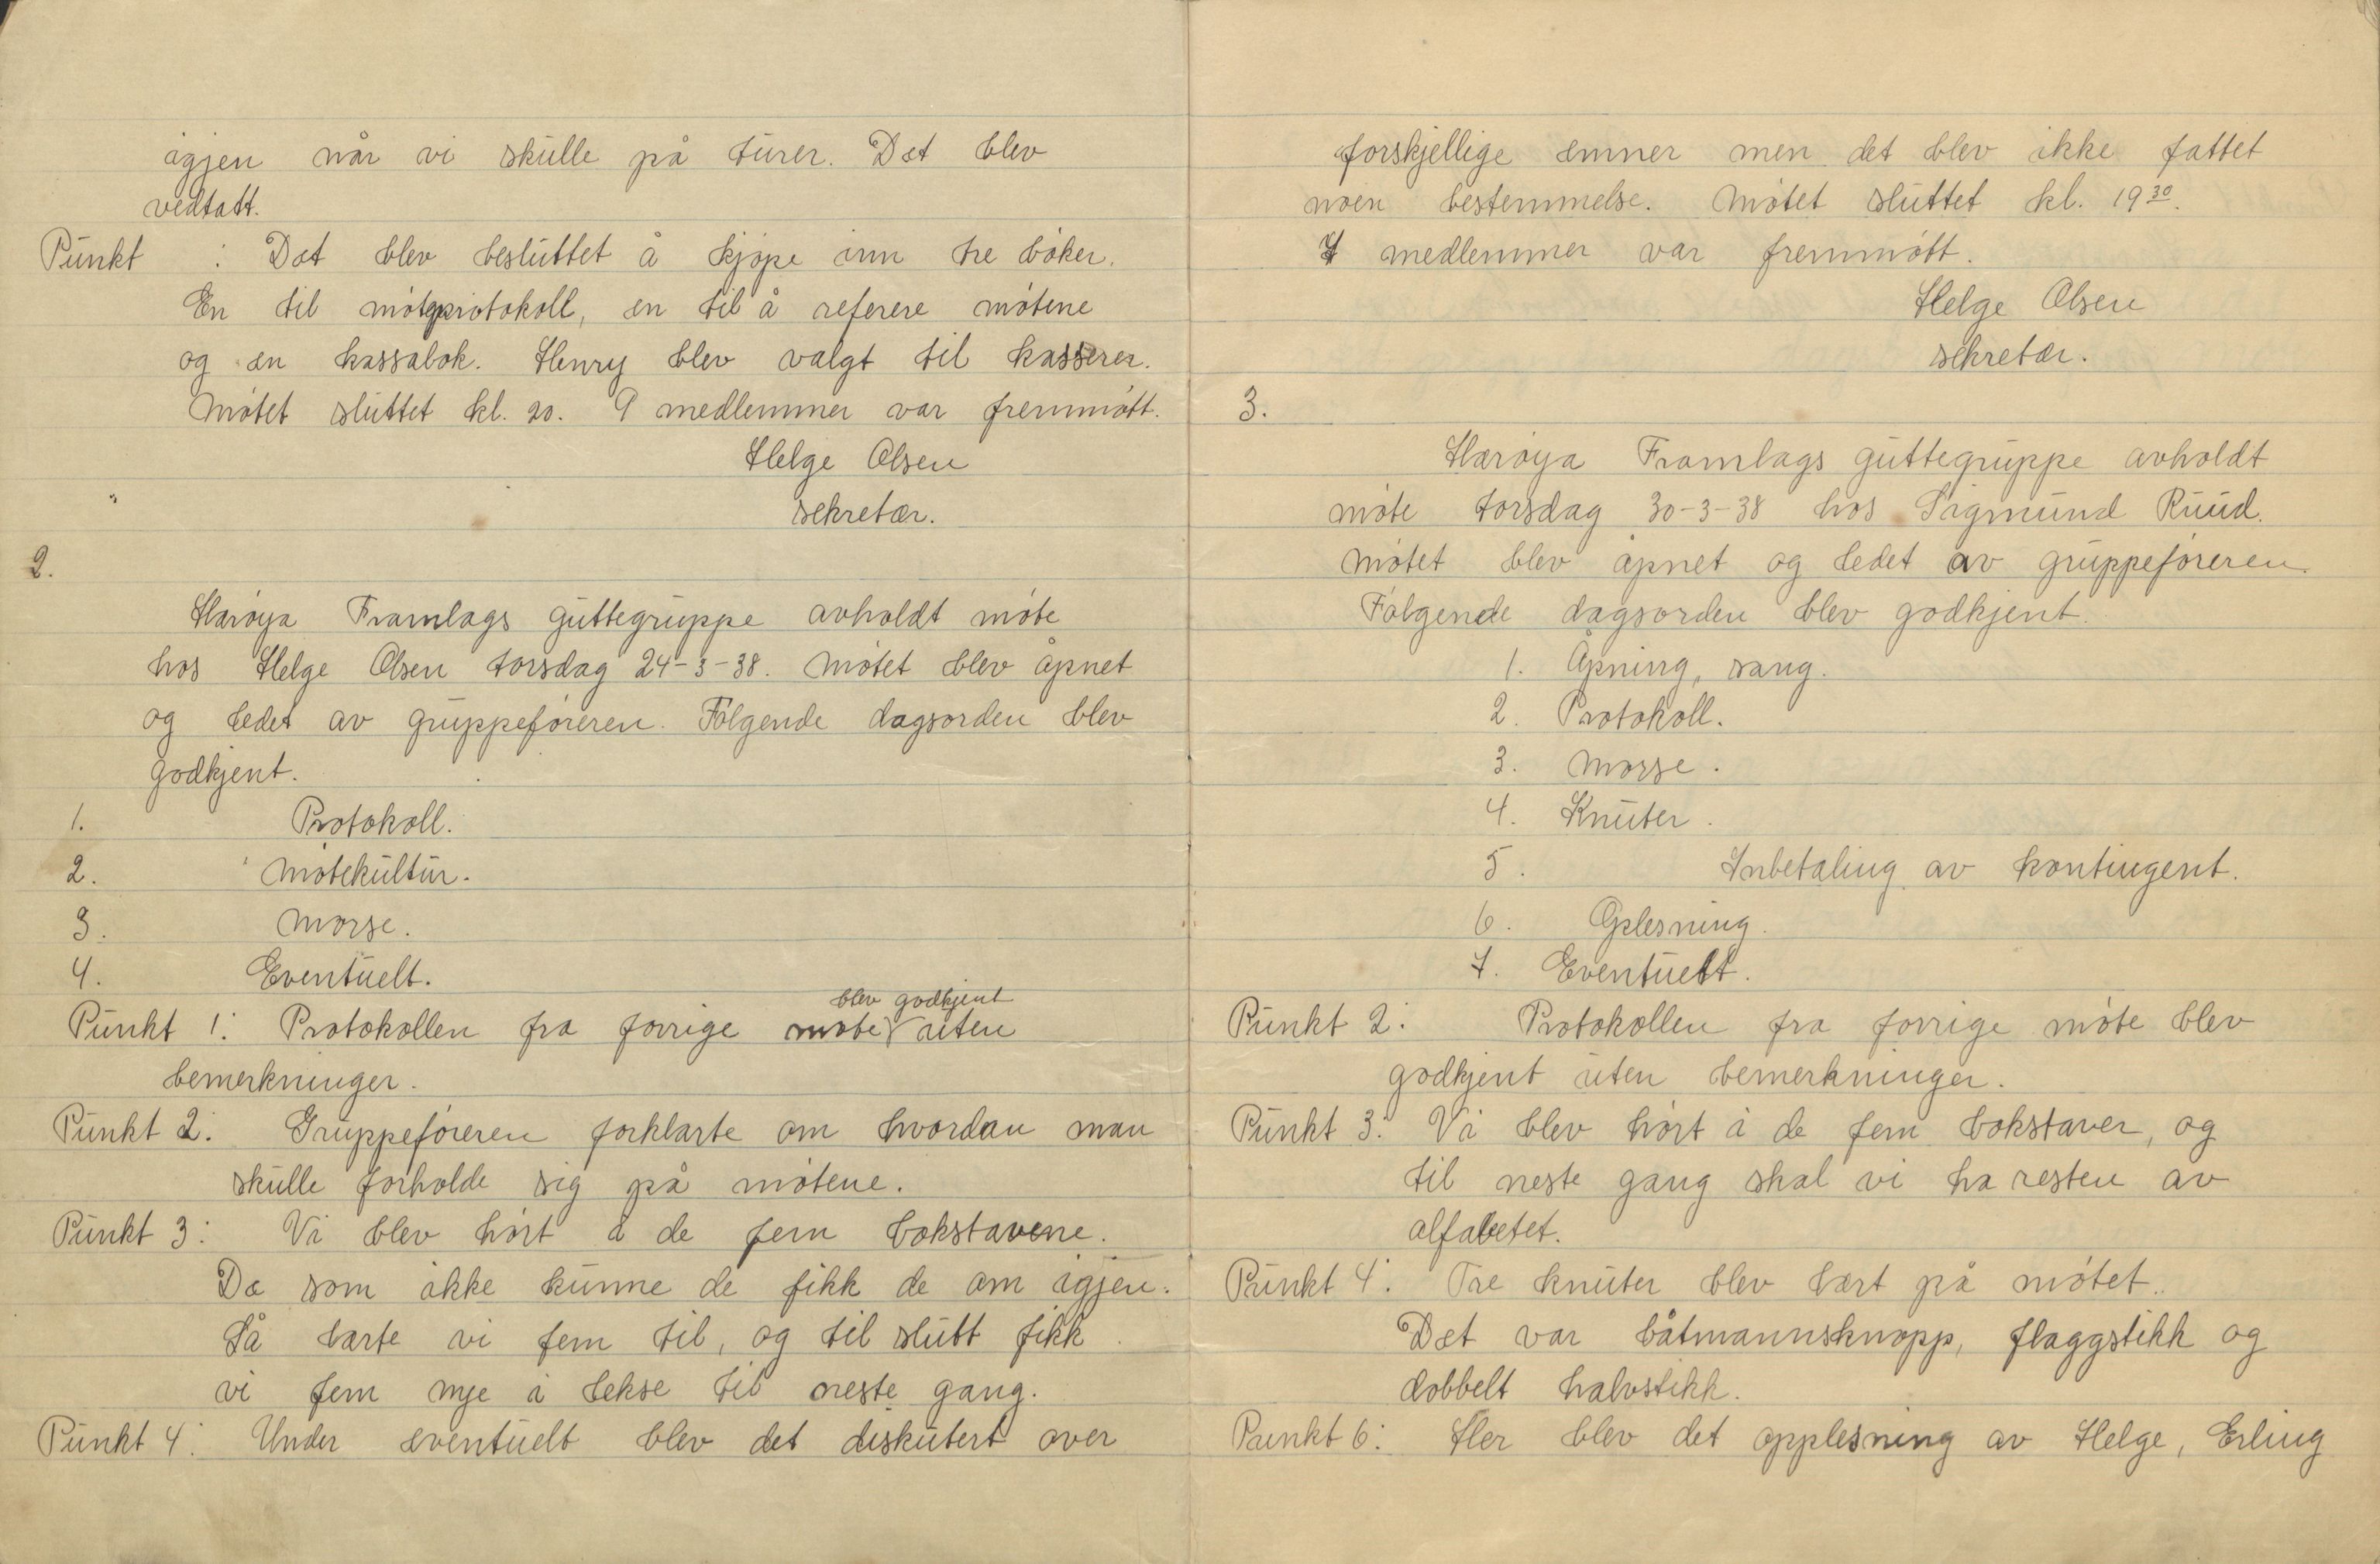 igjen når vi skulle på turer. Det blev
vedtatt.
Punkt : Det blev besluttet å kjøpe inn tre bøker.
En til møteprotokoll, en til å referere møtene
og en kassabok. Henry blev valgt til kasserer.
Møtet sluttet kl. 20. 9 medlemmer var fremmøtt.
Helge Olsen
sekretær.
2.
Herøya Framlags guttegruppe avholdt møte
hos Helge Olsen torsdag 24-3-38. Møtet blev åpnet
og ledet av gruppeføreren. Følgende dagsorden blev
godkjent.
1. Protokoll.
2. Møtekultur.
3. Morse.
4. Eventuelt.
blev godkjent
Punkt 1: Protokollen fra forrige møte uten
bemerkninger.
Punkt 2: Gruppeføreren forklarte om hvordan man
skulle forholde sig på møtene.
Punkt 3: Vi blev hørt i de fem bokstavene.
De som ikke kunne de fikk de om igjen.
Så lærte vi fem til, og til slutt fikk
vi fem nye i lekse til neste gang.
Punkt 4: Under eventuelt blev det diskutert over
forskjellige emner men det blev ikke fattet
noen bestemmelse. Møtet sluttet kl. 19 30.
7 medlemmer var fremmøtt.
Helge Olsen
sekretær.
3.
Herøya Framlags guttegruppe avholdt
møte torsdag 30-3-38 hos Sigmund Ruud.
Møtet blev åpnet og ledet av gruppeføreren.
Følgende dagsorden blev godkjent.
1. Åpning, sang.
2. Protokoll.
3. Morse.
4. Knuter.
5. Inbetaling av kontingent.
6. Oplesning.
7. Eventuelt.
Punkt 2: Protokollen fra forrige møte blev
godkjent uten bemerkninger.
Punkt 3: Vi blev hørt i de fem bokstaver, og
til neste gang skal vi ha resten av
alfabetet.
Punkt 4: Tre knuter blev lært på møtet.
Det var båtmannsknopp, flaggstikk og
dobbelt halvstikk.
Punkt 6: Her blev det opplesning av Helge, Erling